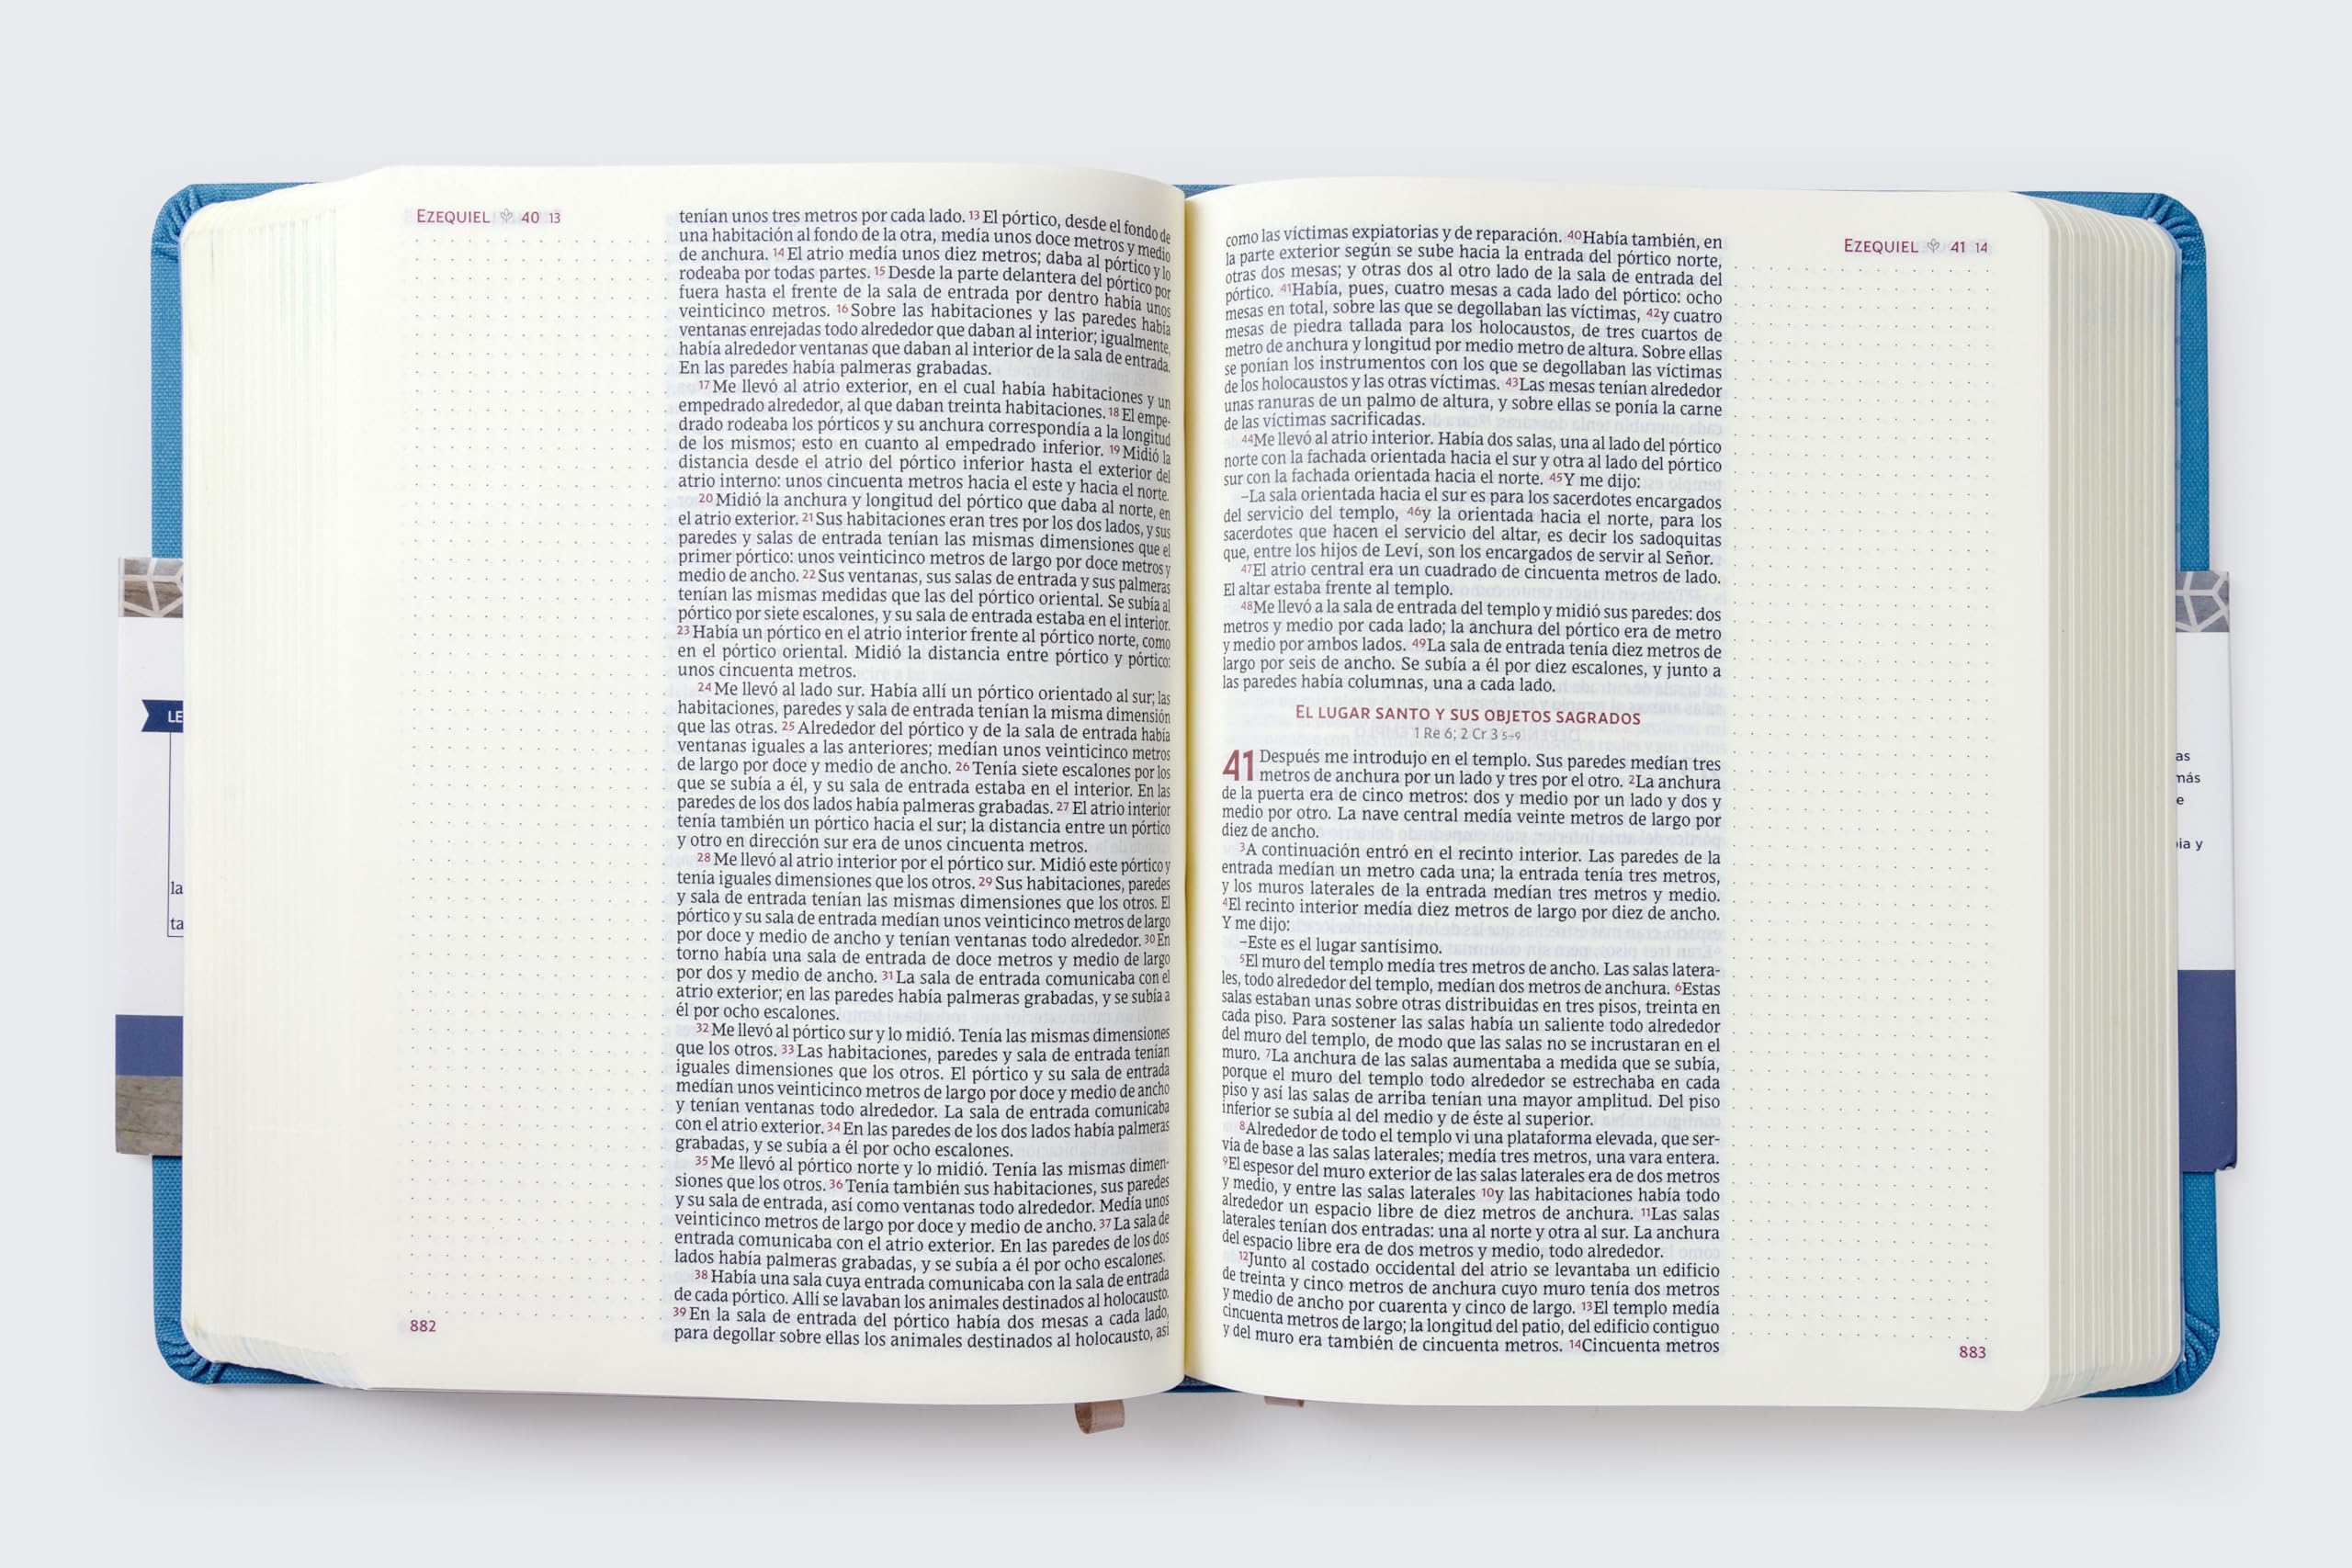 EZEQUIEL 40 13
tenían unos tres metros por cada lado. 13 El pórtico, desde el fondo de
una habitación al fondo de la otra, medía unos doce metros y medio
de anchura. 14 El atrio medía unos diez metros; daba al pórtico y lo
rodeaba por todas partes. 15 Desde la parte delantera del pórtico por
fuera hasta el frente de la sala de entrada por dentro había unos
veinticinco metros. 16 Sobre las habitaciones y las paredes había
ventanas enrejadas todo alrededor que daban al interior; igualmente,
había alrededor ventanas que daban al interior de la sala de entrada.
En las paredes había palmeras grabadas.
17 Me llevó al atrio exterior, en el cual había habitaciones y un
empedrado alrededor, al que daban treinta habitaciones. 18 El empe-
drado rodeaba los pórticos y su anchura correspondía a la longitud
de los mismos; esto en cuanto al empedrado inferior. 19 Midió la
distancia desde el atrio del pórtico inferior hasta el exterior del
atrio interno: unos cincuenta metros hacia el este y hacia el norte.
20 Midió la anchura y longitud del pórtico que daba al norte, en
el atrio exterior. 21 Sus habitaciones eran tres por los dos lados, y sus
paredes y salas de entrada tenían las mismas dimensiones que el
primer pórtico: unos veinticinco metros de largo por doce metros y
medio de ancho. 22 Sus ventanas, sus salas de entrada y sus palmeras
tenían las mismas medidas que las del pórtico oriental. Se subía al
pórtico por siete escalones, y su sala de entrada estaba en el interior.
23 Había un pórtico en el atrio interior frente al pórtico norte, como
en el pórtico oriental. Midió la distancia entre pórtico y pórtico:
unos cincuenta metros.
24 Me llevó al lado sur. Había allí un pórtico orientado al sur; las
habitaciones, paredes y sala de entrada tenían la misma dimensión
que las otras. 25 Alrededor del pórtico y de la sala de entrada había
ventanas iguales a las anteriores; medían unos veinticinco metros
de largo por doce y medio de ancho. 26 Tenía siete escalones por los
que se subía a él, y su sala de entrada estaba en el interior. En las
paredes de los dos lados había palmeras grabadas. 27 El atrio interior
tenía también un pórtico hacia el sur; la distancia entre un pórtico
y otro en dirección sur era de unos cincuenta metros.
28 Me llevó al atrio interior por el pórtico sur. Midió este pórtico y
tenía iguales dimensiones que los otros. 29 Sus habitaciones, paredes
y sala de entrada tenían las mismas dimensiones que los otros. El
pórtico y su sala de entrada medían unos veinticinco metros de largo
por doce y medio de ancho y tenían ventanas todo alrededor. 30 En
torno había una sala de entrada de doce metros y medio de largo
por dos y medio de ancho. 31 La sala de entrada comunicaba con el
atrio exterior; en las paredes había palmeras grabadas, y se subía a
él por ocho escalones.
32 Me llevó al pórtico sur y lo midió. Tenía las mismas dimensiones
que los otros. 33 Las habitaciones, paredes y sala de entrada tenían
iguales dimensiones que los otros. El pórtico y su sala de entrada
medían unos veinticinco metros de largo por doce y medio de ancho
y tenían ventanas todo alrededor. La sala de entrada comunicaba
con el atrio exterior. 34 En las paredes de los dos lados había palmeras
grabadas, y se subía a él por ocho escalones.
35 Me llevó al pórtico norte y lo midió. Tenía las mismas dimen-
siones que los otros. 36 Tenía también sus habitaciones, sus paredes
y su sala de entrada, así como ventanas todo alrededor. Medía unos
veinticinco metros de largo por doce y medio de ancho. 37 La sala de
entrada comunicaba con el atrio exterior. En las paredes de los dos
lados había palmeras grabadas, y se subía a él por ocho escalones.
38 Había una sala cuya entrada comunicaba con la sala de entrada
de cada pórtico. Allí se lavaban los animales destinados al holocausto.
39 En la sala de entrada del pórtico había dos mesas a cada lado,
para degollar sobre ellas los animales destinados al holocausto, así
882
EZEQUIEL 41 14
como las víctimas expiatorias y de reparación. 40 Había también, en
la parte exterior según se sube hacia la entrada del pórtico norte,
otras dos mesas; y otras dos al otro lado de la sala de entrada del
pórtico. 41 Había, pues, cuatro mesas a cada lado del pórtico: ocho
mesas en total, sobre las que se degollaban las víctimas, 42 y cuatro
mesas de piedra tallada para los holocaustos, de tres cuartos de
metro de anchura y longitud por medio metro de altura. Sobre ellas
se ponían los instrumentos con los que se degollaban las víctimas
de los holocaustos y las otras víctimas. 43 Las mesas tenían alrededor
unas ranuras de un palmo de altura, y sobre ellas se ponía la carne
de las víctimas sacrificadas.
44 Me llevó al atrio interior. Había dos salas, una al lado del pórtico
norte con la fachada orientada hacia el sur y otra al lado del pórtico
sur con la fachada orientada hacia el norte. 45 Y me dijo:
–La sala orientada hacia el sur es para los sacerdotes encargados
del servicio del templo, 46 y la orientada hacia el norte, para los
sacerdotes que hacen el servicio del altar, es decir los sadoquitas
que, entre los hijos de Leví, son los encargados de servir al Señor.
47 El atrio central era un cuadrado de cincuenta metros de lado.
El altar estaba frente al templo.
48 Me llevó a la sala de entrada del templo y midió sus paredes: dos
metros y medio por cada lado; la anchura del pórtico era de metro
y medio por ambos lados. 49 La sala de entrada tenía diez metros de
largo por seis de ancho. Se subía a él por diez escalones, y junto a
las paredes había columnas, una a cada lado.
EL LUGAR SANTO Y SUS OBJETOS SAGRADOS
1 Re 6; 2 Cr 3 5-9
41 Después me introdujo en el templo. Sus paredes medían tres
metros de anchura por un lado y tres por el otro. 2 La anchura
de la puerta era de cinco metros: dos y medio por un lado y dos y
medio por otro. La nave central medía veinte metros de largo por
diez de ancho.
3 A continuación entró en el recinto interior. Las paredes de la
entrada medían un metro cada una; la entrada tenía tres metros,
y los muros laterales de la entrada medían tres metros y medio.
4 El recinto interior medía diez metros de largo por diez de ancho.
Y me dijo:
–Este es el lugar santísimo.
5 El muro del templo medía tres metros de ancho. Las salas latera-
les, todo alrededor del templo, medían dos metros de anchura. 6 Estas
salas estaban unas sobre otras distribuidas en tres pisos, treinta en
cada piso. Para sostener las salas había un saliente todo alrededor
del muro del templo, de modo que las salas no se incrustaran en el
muro. 7 La anchura de las salas aumentaba a medida que se subía,
porque el muro del templo todo alrededor se estrechaba en cada
piso y así las salas de arriba tenían una mayor amplitud. Del piso
inferior se subía al del medio y de éste al superior.
8 Alrededor de todo el templo vi una plataforma elevada, que ser-
vía de base a las salas laterales; medía tres metros, una vara entera.
9 El espesor del muro exterior de las salas laterales era de dos metros
y medio, y entre las salas laterales 10 y las habitaciones había todo
alrededor un espacio libre de diez metros de anchura. 11 Las salas
laterales tenían dos entradas: una al norte y otra al sur. La anchura
del espacio libre era de dos metros y medio, todo alrededor.
12 Junto al costado occidental del atrio se levantaba un edificio
de treinta y cinco metros de anchura cuyo muro tenía dos metros
y medio de ancho por cuarenta y cinco de largo. 13 El templo medía
cincuenta metros de largo; la longitud del patio, del edificio contiguo
y del muro era también de cincuenta metros. 14 Cincuenta metros
883
LE
la
ta
as
más
e
ia y